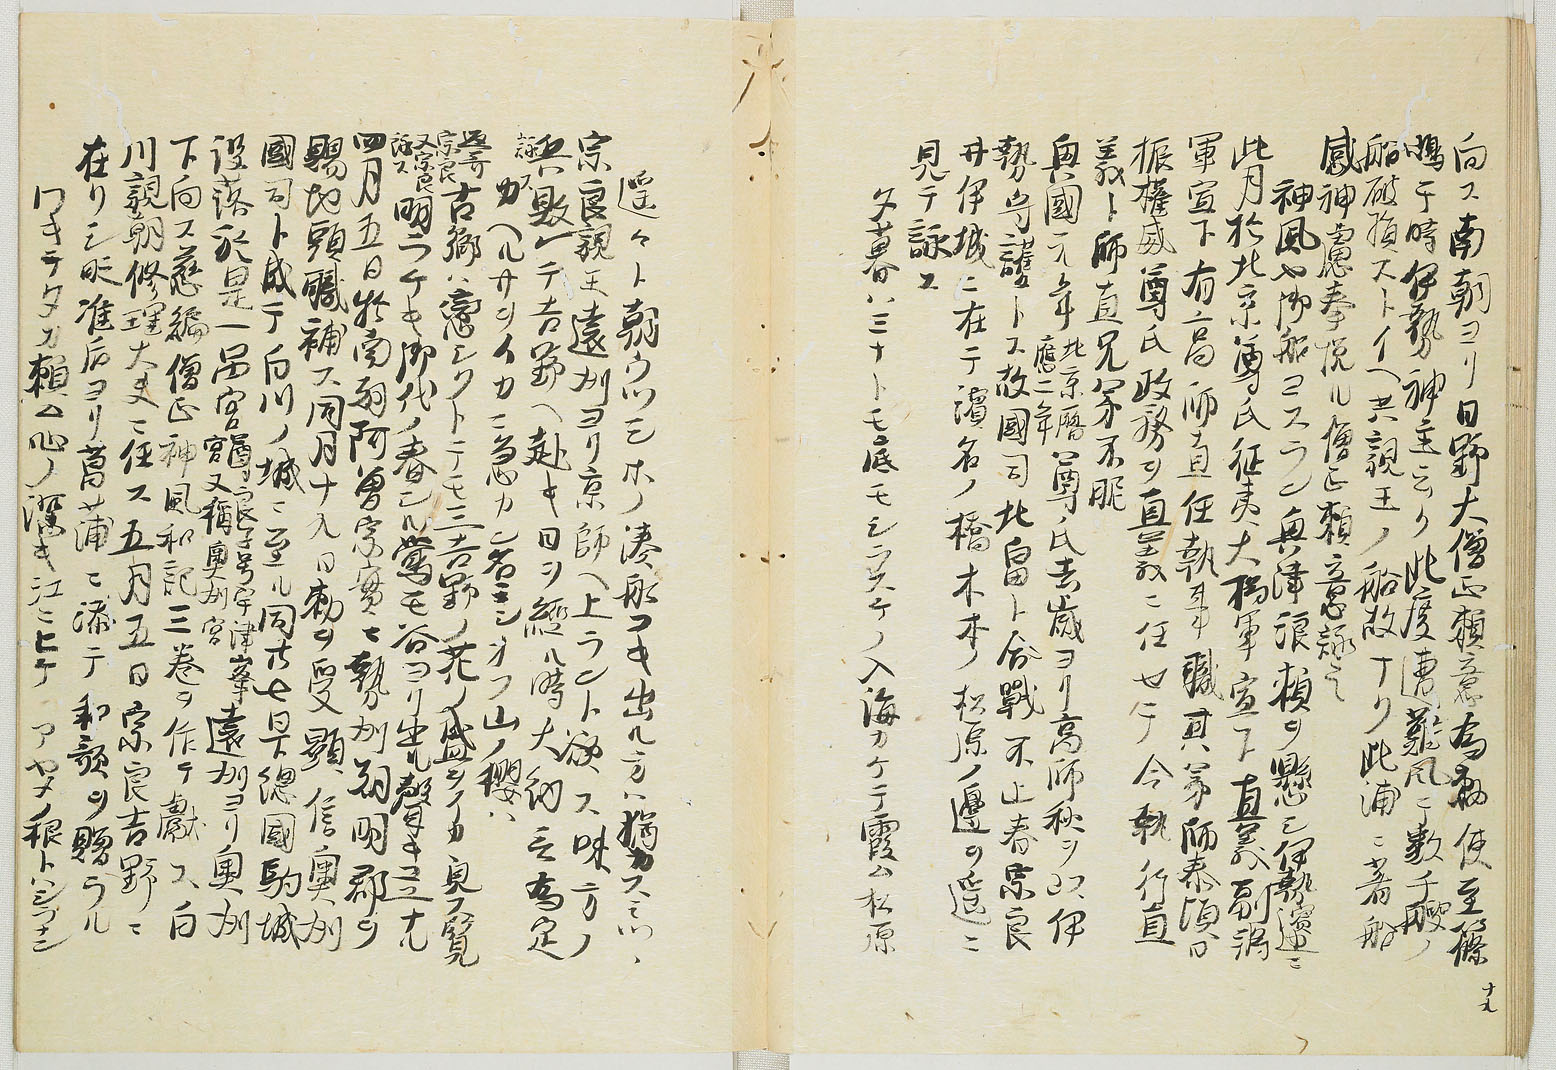 向ス南朝ヨリ日野大僧正頼意為勅使至篠
嶋于時伊勢神主云ク此度遭難風ニ数千艘ノ
船破損ストイヘ共親王ノ船故ナリ此浦ニ著船
感神慮奉悦ル僧正頼意詠之
神風ヤ御船ヨスラン奥津浪頼ヲ懸シ伊勢濱邊ニ
此月於北京尊氏征夷大将軍宣下直義副将
軍宣下有高師直任執事職其弟師泰頃日
振権威尊氏政務ヲ直義ニ任セテ令執行直
義ト師直兄弟不昵
興國元年北京暦應二年尊氏去歳ヨリ高師秋ヲ以伊
勢守護トス故國司北畠ト合戰不止春宗良
井伊城ニ在テ濱名ノ橋木本ノ松原ノ邊ヲ遥ニ
見テ詠ス
夕暮ハミナトモ底モシラスケノ入海カケテ霞ム松原
十九
遥々ト朝ウツシホノ湊船コキ出ル方ハ猶カスミツヽ
宗良親王遠刕ヨリ京師ヘ上ラント欲ス味方ノ
兵敗レテ吉野ヘ赴キ日ヲ經ル時大納言為定
詠ス
カヘルサヲイカニ急カン名ニシオフ山ノ櫻ハ
返哥宗良
古郷ハ戀シクトテモ三吉野ノ花ノ盛ヲイカヽ見ス覧
又宗良詠ス
明ラケキ御代ノ春シル鶯モ谷ヨリ出ル聲キコユナル
四月五日於南朝阿曽宗實ニ勢刕朝明郡ヲ
賜地頭職補ス同月十九日勅ヲ受顕信奥刕
國司ト成テ白川ノ城ニ至ル同廿七日下總國駒城
没落於是一品宮尊良子号宇津峯宮又稱奥刕宮遠刕ヨリ奥刕
下向ス慈編僧正神風和記三巻ヲ作テ獻ス白
川親朝修理大夫ニ任ス五月五日宗良吉野ニ
在リシ時准后ヨリ菖蒲ニ添テ和歌ヲ贈ラル
ワキテタカ頼ム心ノ深キ江ニヒケアヤメノ根トハシラナン